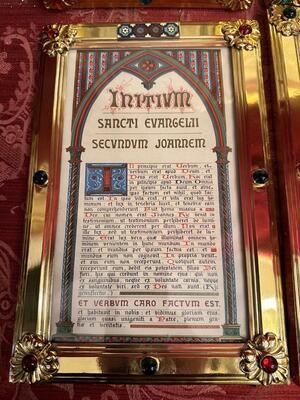 INITIUM
SANCTI EVANGELII
SECUNDUM JOANNEM
In principio erat Verbum, et
verbum erat apud Deum, et
Deus erat Verbum. Hoc erat
in principio apud Deum. Omnia
per ipsum facta sunt: et sine
ipso factum est nihil, quod fac-
tum est: In ipso vita erat, et vita erat lux ho-
minum: et lux in tenebris lucet, et tenebræ eam
non comprehenderunt. Fuit homo missus a
Deo, cui nomen erat Joannes. Hic venit in
testimonium, ut testimonium perhiberet de lumi-
ne, ut omnes crederent per illum. Non erat il-
le lux, sed ut testimonium perhiberet de lumi-
ne. Erat lux vera, quæ illuminat omnem ho-
minem venientem in hunc mundum. In mundo
erat, et mundus per ipsum factus est, et
mundus eum non cognovit. In propria venit,
et sui eum non receperunt. Quotquot autem
receperunt eum, dedit eis potestatem filios Dei
fieri, his qui credunt in nomine ejus: qui non
ex sanguinibus, neque ex voluntate carnis, neque
ex voluntate viri, sed ex Deo nati sunt.
ET VERBUM CARO FACTUM EST,
et habitavit in nobis: et vidimus gloriam ejus,
gloriam quasi unigeniti a Patre, plenum gra-
tiæ et veritatis